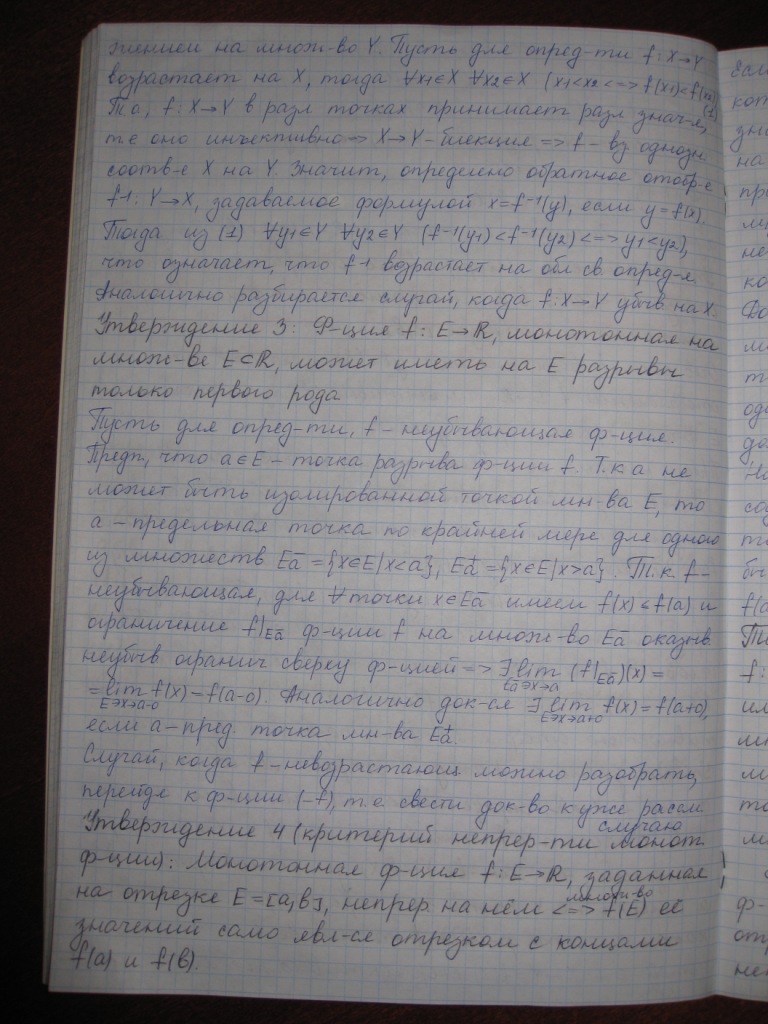 жением на множ-во Y. Пусть для опред-ти f: X→Y
возрастает на X, тогда ∀x1∈X ∀x2∈X (x1<x2 <=> f(x1)<f(x2)) (1)
Т.о, f: X→Y в разл точках принимает разл знач-я,
т.е оно инъективно => X→Y - биекция => f - вз однозн
соотв-е X на Y. Значит, определено обратное отобр-е
f-1: Y→X, задаваемое формулой x=f-1(y), если y=f(x).
Тогда из (1) ∀y1∈Y ∀y2∈Y (f-1(y1)<f-1(y2) <=> y1<y2),
что означает, что f-1 возрастает на обл св опред-я.
Аналогично разбирается случай, когда f: X→Y убыв на X.
Утверждение 3: Ф-ция f: E→R, монотонная на
множ-ве E⊂R, может иметь на E разрывы
только первого рода
Пусть для опред-ти, f - неубывающая ф-ция.
Предп, что a∈E - точка разрыва ф-ции f. Т.к a не
может быть изолированной точкой мн-ва E, то
a - предельная точка по крайней мере для одного
из множеств Ea- = {x∈E|x<a}, Ea+ = {x∈E|x>a}. Т.к. f -
неубывающая, для ∀ точки x∈Ea- имеем f(x)≤f(a) и
ограничение f|Ea- ф-ции f на множ-во Ea- оказыв.
неубыв огранич сверху ф-цией => ∃ lim (f|Ea-)(x) =
Ea-∋x→a
= lim f(x) = f(a-0). Аналогично док-ся ∃ lim f(x) = f(a+0),
E∋x→a-0 E∋x→a+0
если a - пред. точка мн-ва Ea+.
Случай, когда f - невозрастающ можно разобрать,
перейдя к ф-ции (-f), т.е. свести док-во к уже рассм.
случаю
Утверждение 4 (критерий непрер-ти монот.
ф-ции): Монотонная ф-ция f: E→R, заданная
на отрезке E=[a,b], непрер. на нём <=> множ-во f(E) её
значений само явл-ся отрезком с концами
f(a) и f(b).
Если
кот
на